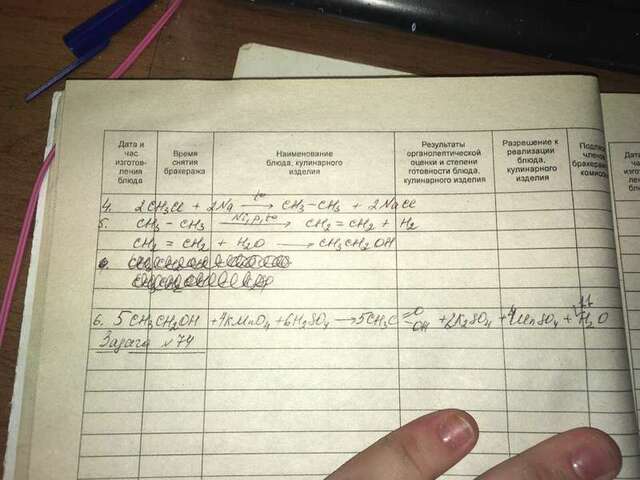 Дата и час изготов- ления блюда
Время снятия бракеража
Наименование блюда, кулинарного изделия
Результаты органолептической оценки и степени готовности блюда, кулинарного изделия
Разрешение к реализации блюда, кулинарного изделия
членов
4. 2CH3Cl + 2Na t° → CH3-CH3 + 2NaCl
5. CH3-CH3 Ni,p,t° → CH2=CH2 + H2
CH2=CH2 + H2O → CH3CH2OH
6. 5CH3CH2OH +4KMnO4 +6H2SO4 → 5CH3C =O OH +2K2SO4 +4MnSO4 + 11 H2O
Задача №74